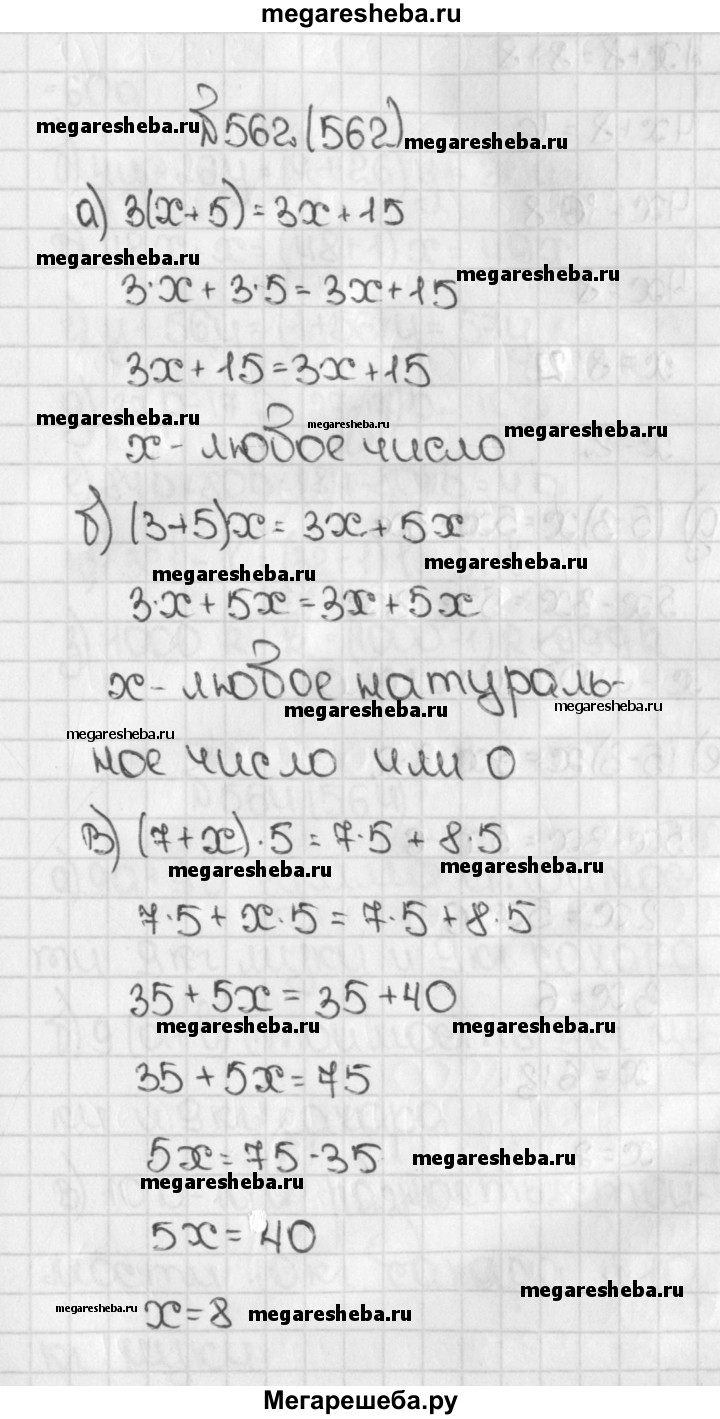 megaresheba.ru
№562.(562)
megaresheba.ru megaresheba.ru
а) 3(x+5)=3x+15
megaresheba.ru megaresheba.ru
3·x+3·5=3x+15
3x+15=3x+15
megaresheba.ru megaresheba.ru megaresheba.ru
x-любое число
б) (3+5)x=3x+5x
megaresheba.ru megaresheba.ru
3·x+5x=3x+5x
x-любое натураль-
megaresheba.ru megaresheba.ru
megaresheba.ru
ное число или 0
в) (7+x)·5=7·5+8·5
megaresheba.ru megaresheba.ru
7·5+x·5=7·5+8·5
35+5x=35+40
megaresheba.ru megaresheba.ru
35+5x=75
5x=75-35
megaresheba.ru
megaresheba.ru
5x=40
megaresheba.ru
megaresheba.ru x=8 megaresheba.ru
Мегарешеба.ру